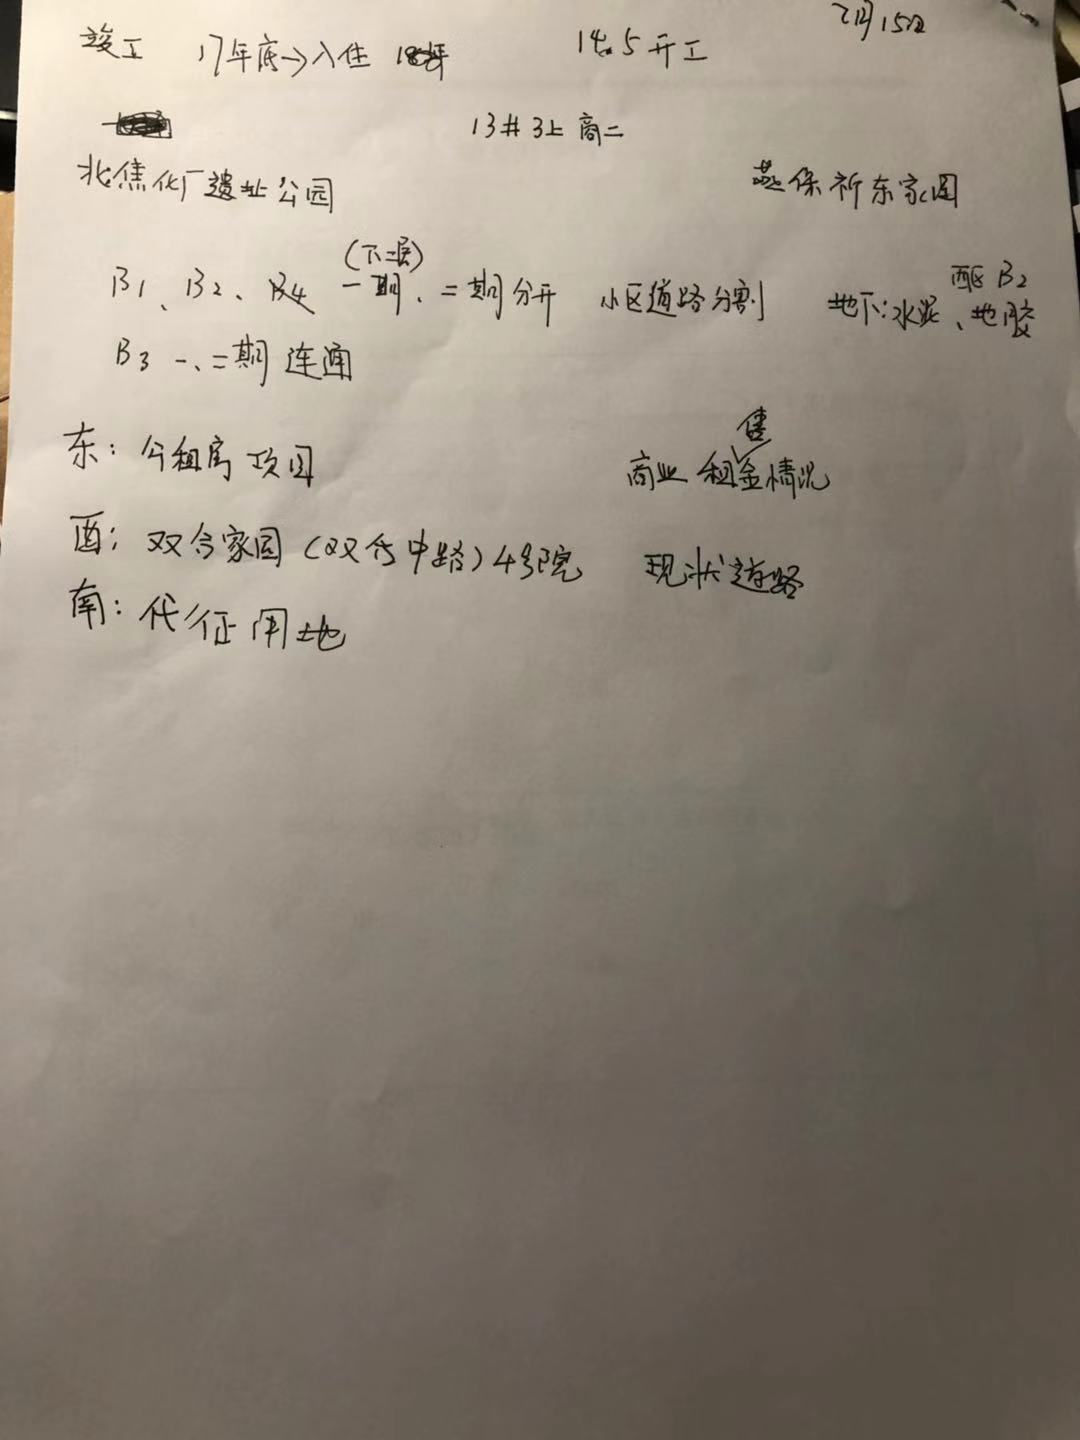 7月15日
竣工 17年底→入住 14.5开工
13# 3上 商二
北:焦化厂遗址公园 燕保祈东家园
(下二层) 西区 B2
B1、B2、B4 一期、二期分开 小区道路分割 地下:水泥、地胶
B3 一、二期 连通
东: 公租房项目
售
商业 租金情况
西: 双合家园(双合中路)4号院 现状道路
南: 代征用地